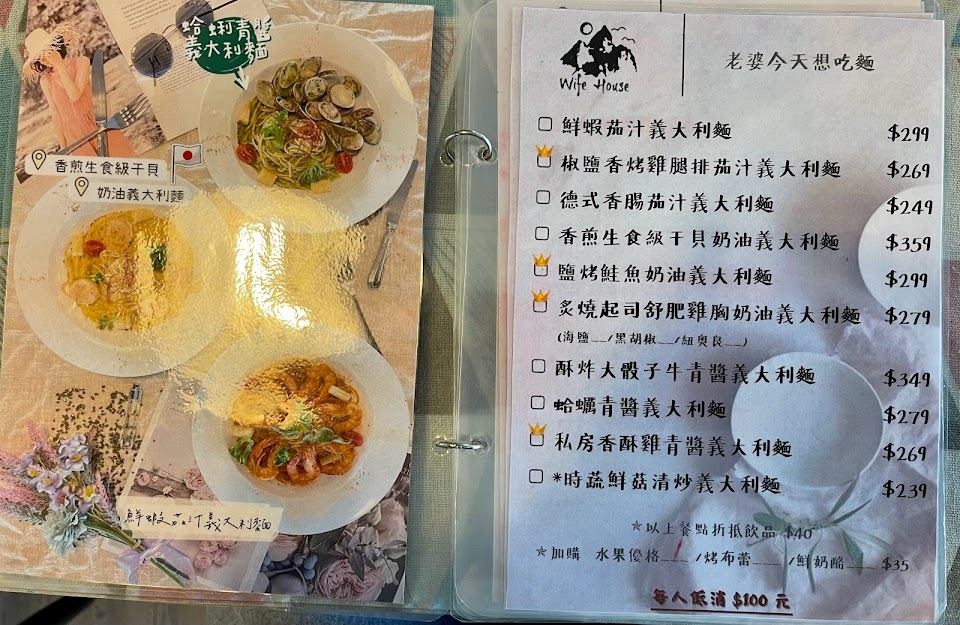 蛤蜊青醬
義大利麵
香煎生食級干貝
奶油義大利麵
鮮蝦茄汁義大利麵
Wife House
老婆今天想吃麵
鮮蝦茄汁義大利麵 $299
椒鹽香烤雞腿排茄汁義大利麵 $269
德式香腸茄汁義大利麵 $249
香煎生食級干貝奶油義大利麵 $359
鹽烤鮭魚奶油義大利麵 $299
炙燒起司舒肥雞胸奶油義大利麵 $279
(海鹽__/黑胡椒__/紐奧良__)
酥炸大骰子牛青醬義大利麵 $349
蛤蠣青醬義大利麵 $279
私房香酥雞青醬義大利麵 $269
*時蔬鮮菇清炒義大利麵 $239
☆以上餐點折抵飲品 $40
☆加購 水果優格___ /烤布蕾___ /鮮奶酪___ $35
每人低消 $100 元